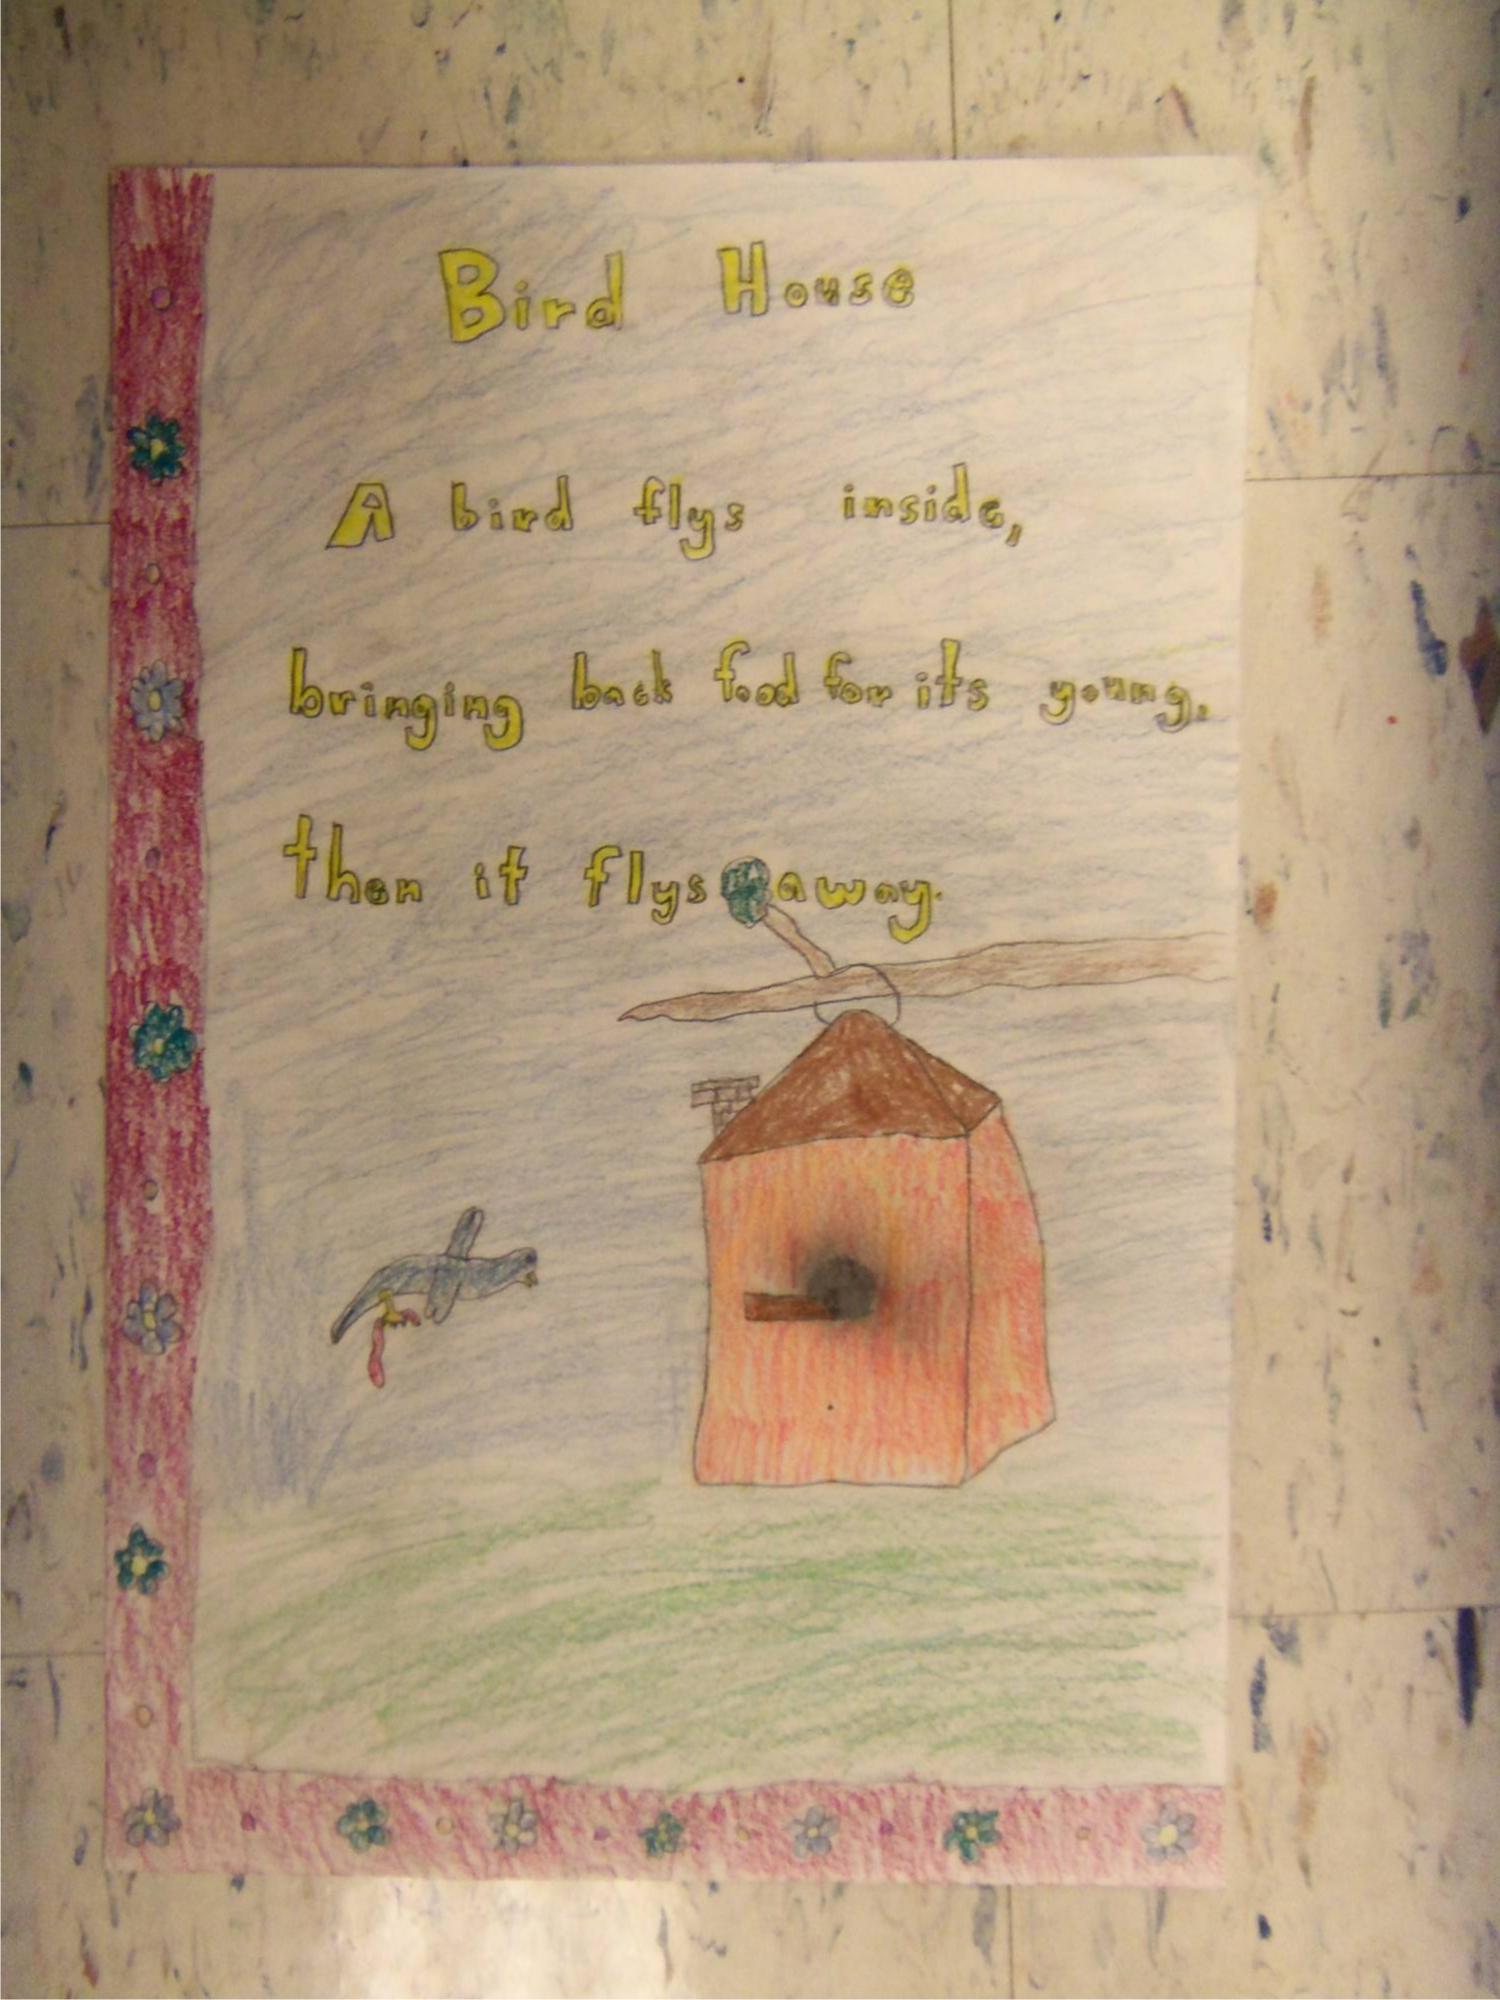 Bird House
A bird flys inside,
bringing back food for its young,
then it flys away.